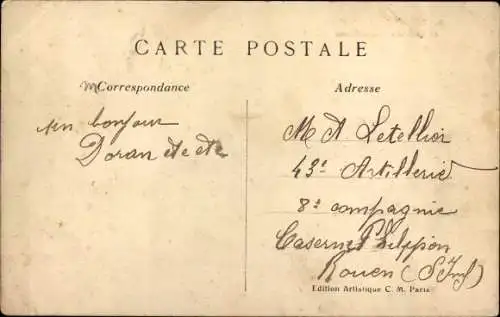 CARTE POSTALE
Correspondance
Adresse
un bonjour
Doran etc etc
M A Letellier
43e Artillerie
8e compagnie
Caserne Philippon
Rouen (S Inf)
Edition Artistique C. M. Paris